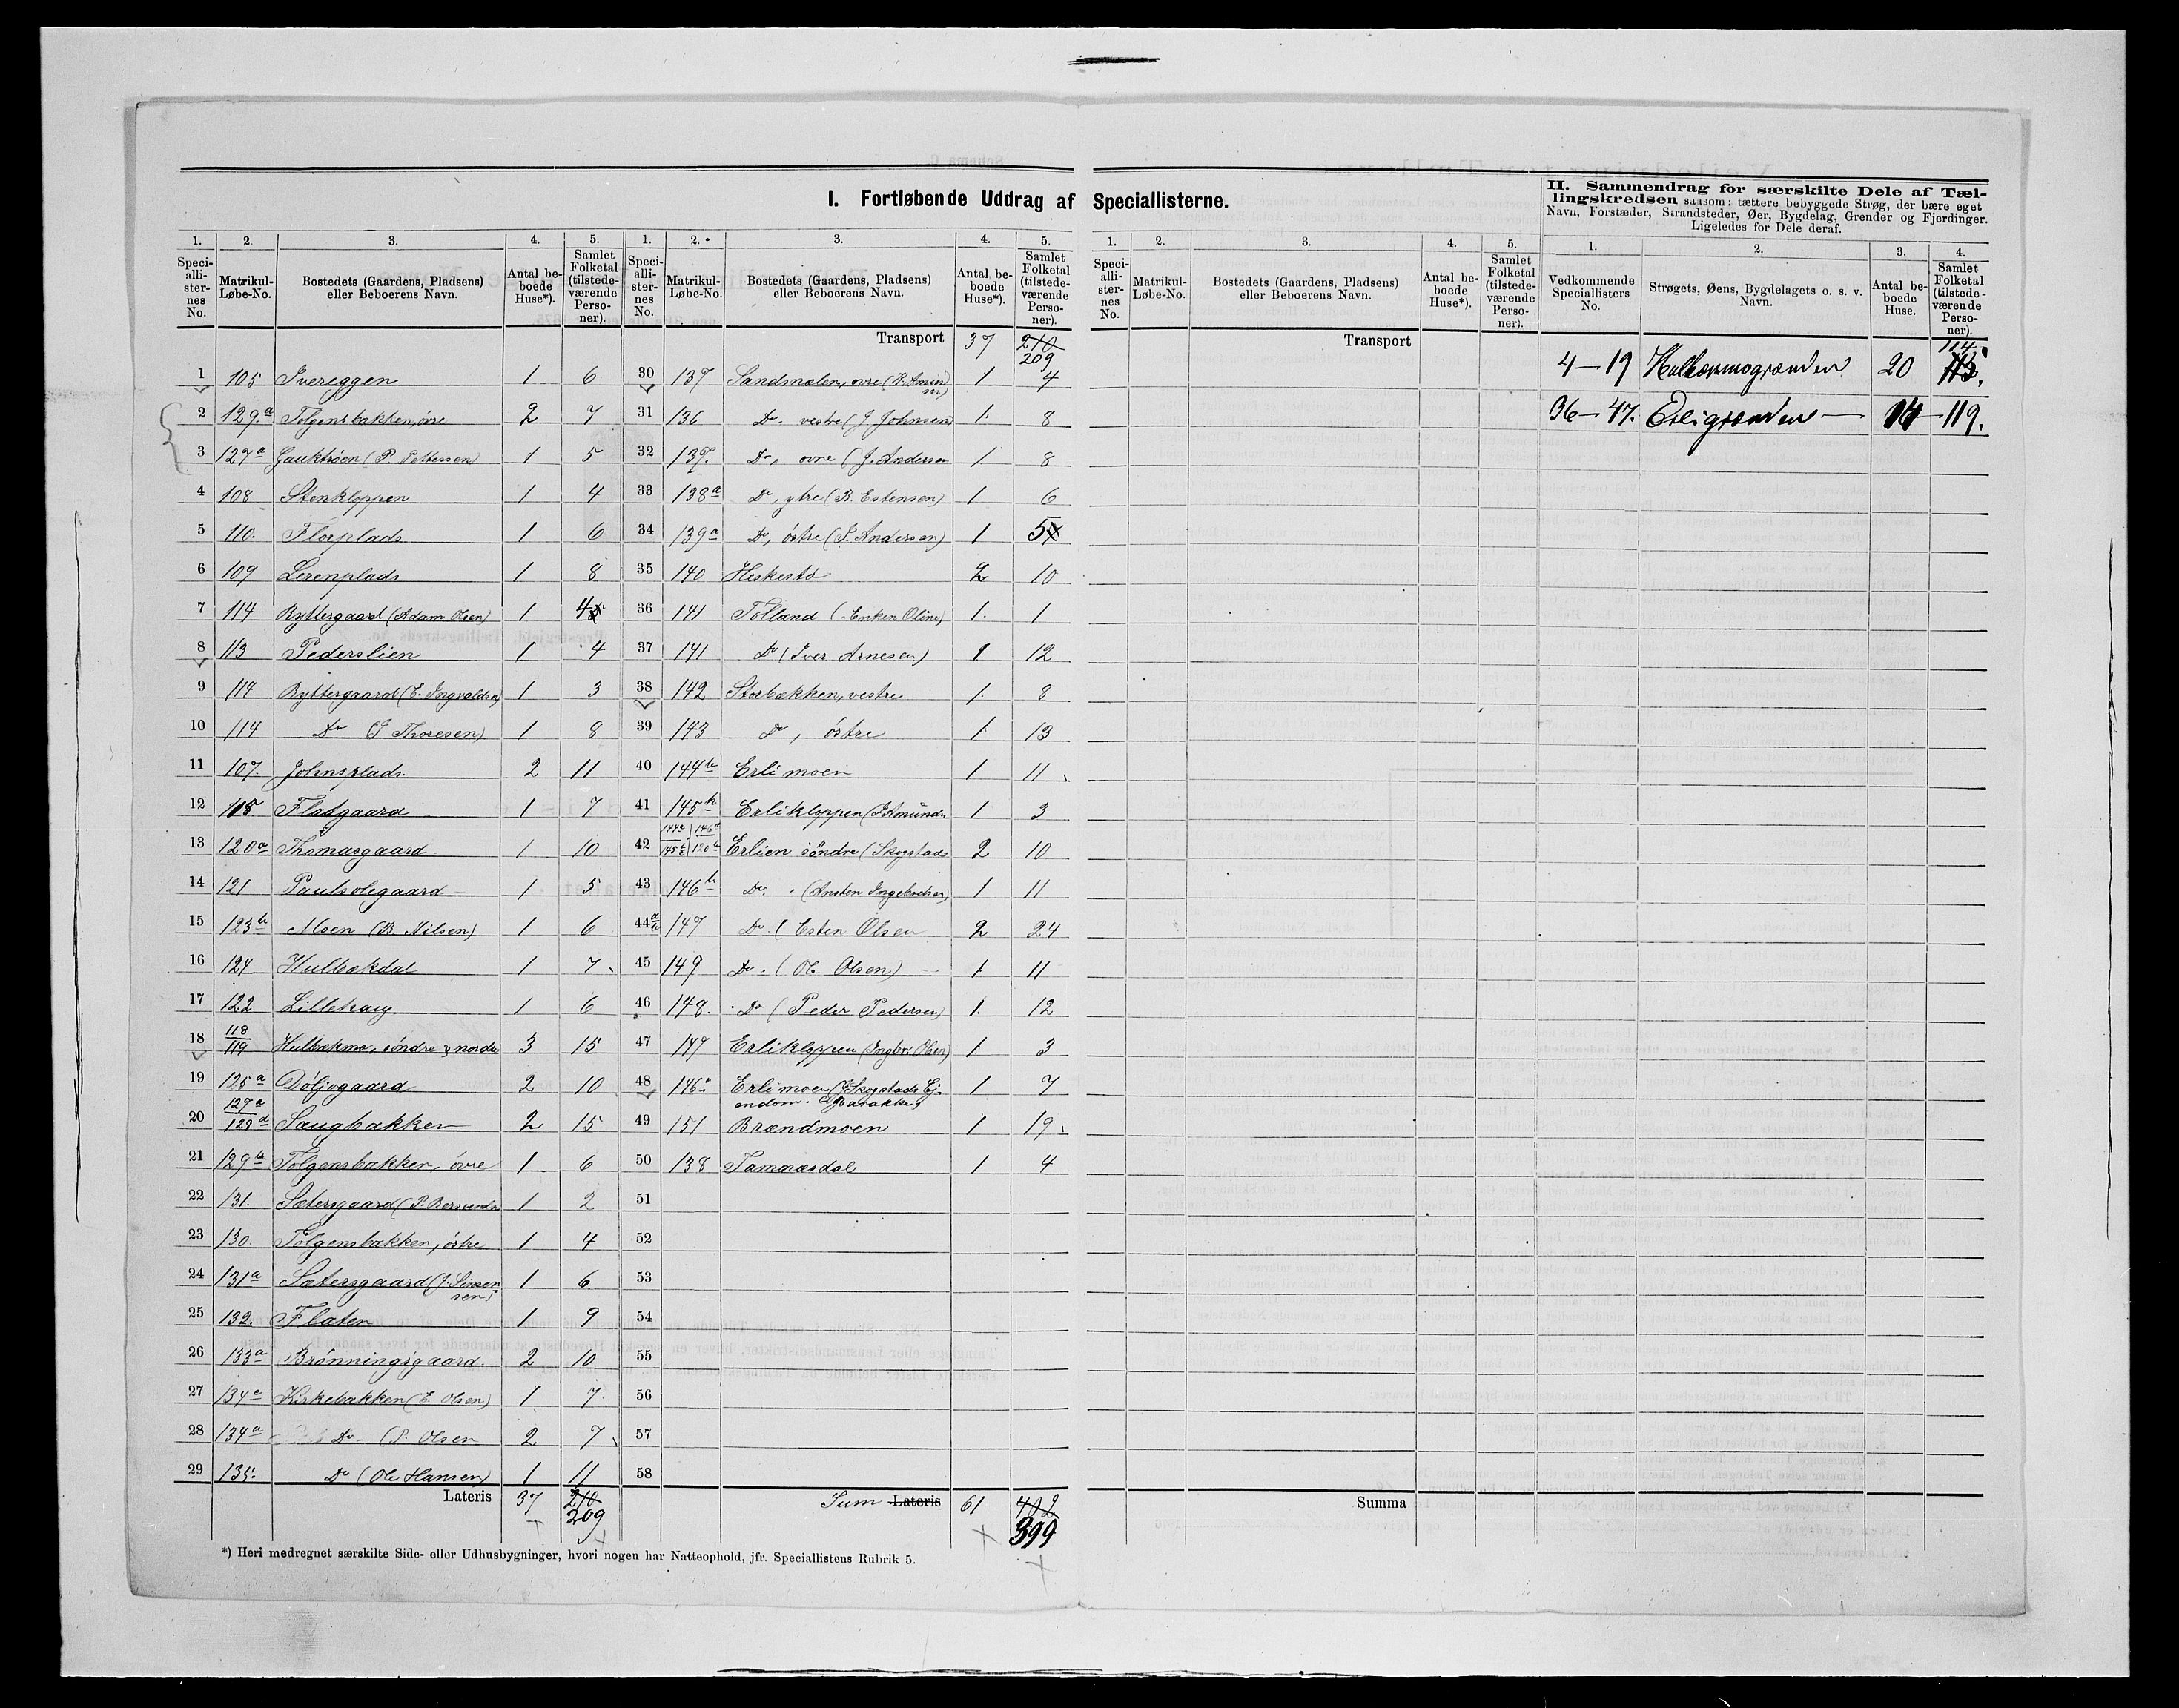 I. Fortløbende Uddrag af Speciallisterne.
II. Sammendrag for særskilte Dele af Tæl-
lingskredsen saasom: tættere bebyggede Strøg, der bære eget
Navn, Forstæder, Strandsteder, Øer, Bygdelag, Grender og Fjerdinger.
Ligeledes for Dele deraf.
1. 2. 3. 4. 5. 1. 2. 3. 4. 5. 1. 2. 3. 4. 5. 1. 2. 3. 4.
Speci-alli-ster-nes No. Matrikul-Løbe-No. Bostedets (Gaardens, Pladsens) eller Beboerens Navn. Antal be-boede Huse*). Samlet Folketal (tilstede-værende Perso-ner).
Speci-alli-ster-nes No. Matrikul-Løbe-No. Bostedets (Gaardens, Pladsens) eller Beboerens Navn. Antal be-boede Huse*). Samlet Folketal (tilstede-værende Perso-ner).
Speci-alli-ster-nes No. Matrikul-Løbe-No. Bostedets (Gaardens, Pladsens) eller Beboerens Navn. Antal be-boede Huse*). Samlet Folketal (tilstede-værende Perso-ner).
Vedkommende Speciallisters No. Strøgets, Øens, Bygdelagets o. s. v. Navn. Antal be-boede Huse. Samlet Folketal (tilstede-værende Perso-ner).
1 105 Ivereggen 1 6
2 129.a Tolgensbakken, øvre 2 7
3 127a Gauktrøen (P. Pettersen) 1 5
4 108 Stenkloppen 1 4
5 110. Floeplads 1 6
6 109 Lerenplads 1 8
7 114 Ryttergaard (Adam Olsen) 1 4
8 113 Pederslien 1 4
9 114 Ryttergaard (E. Ingvaldsen) 1 3
10 114 Do (J Thoresen) 1 8
11 107. Johnsplads 2 11
12 115 Fladgaard 1 7
13 120a Thomasgaard 1 10
14 121 Paulsolegaard 1 5
15 123b Moen (B. Nilsen) 1 6
16 124 Hulbækdal 1 7
17 122 Lillehaug 1 6
18 118 119 Hulbækmo, søndre & nordre 3 15
19 125a Døljogaard 2 10
20 127a 128d Saugbakken 2 15
21 129b Tolgensbakken, øvre 1 6
22 131. Sætersgaard (P. Bersvends 1 2
23 130. Tolgensbakken, østre 1 4
24 131a Sætersgaard (J. Simen
sen) 1 6
25 132. Flaten 1 9
26 133a Brønningsgaard 2 10
27 134a Kirkebakken (E Olsen) 1 7
28 134a Do (P. Olsen 2 7
29 135. Do (Ole Hansen) 1 11
Lateris 37 210
209
Transport 37 210
209
30 137 Sandmælen, øvre 1 4
31 136 Do. vestre (J. Johnsen) 1 8
32 137. Do, øvre (J. Andersen 1 8
33 138a Do, ytre (B. Estensen) 1 6
34 139a Do, østre (P. Andersen) 1 5
35 140 Heskestø 2 10
36 141 Tolland (Enken Oline) 1 1
37 141 Do (Iver Arnesen) 1 12
38 142 Storbakken, vestre 1 8
39 143 Do, østre 1 13
40 144b Erlimoen 1 11
41 145b Erlikloppen (J Amunds 1 3
42 144a 146a 145 120b Erlien søndre (Skogstad 2 10
43 146b Do. (Ansten Ingebretsen) 1 11
44 147 Do. (Esten Olsen 2 24
45 149 Do. (Ole Olsen) 1 11
46 148. Do (Peder Pedersen) 1 12
47 147 Erlikloppen (Ingbr. Olsen) 1 3
48 146a Erlimoen (J Skogstads Ej-
endom. Barakke) 1 7
49 151 Brændmoen 1 19
50 138 Tamnæsdal 1 4
51
52
53
54
55
56
57
58
Sum Lateris 61 402
399
Transport
Summa
114
4—19 Hulbækmogrænden 20 115.
36—47. Erligrænden — 14 — 119.
*) Heri medregnet særskilte Side- eller Udhusbygninger, hvori nogen har Natteophold, jfr. Speciallistens Rubrik 5.